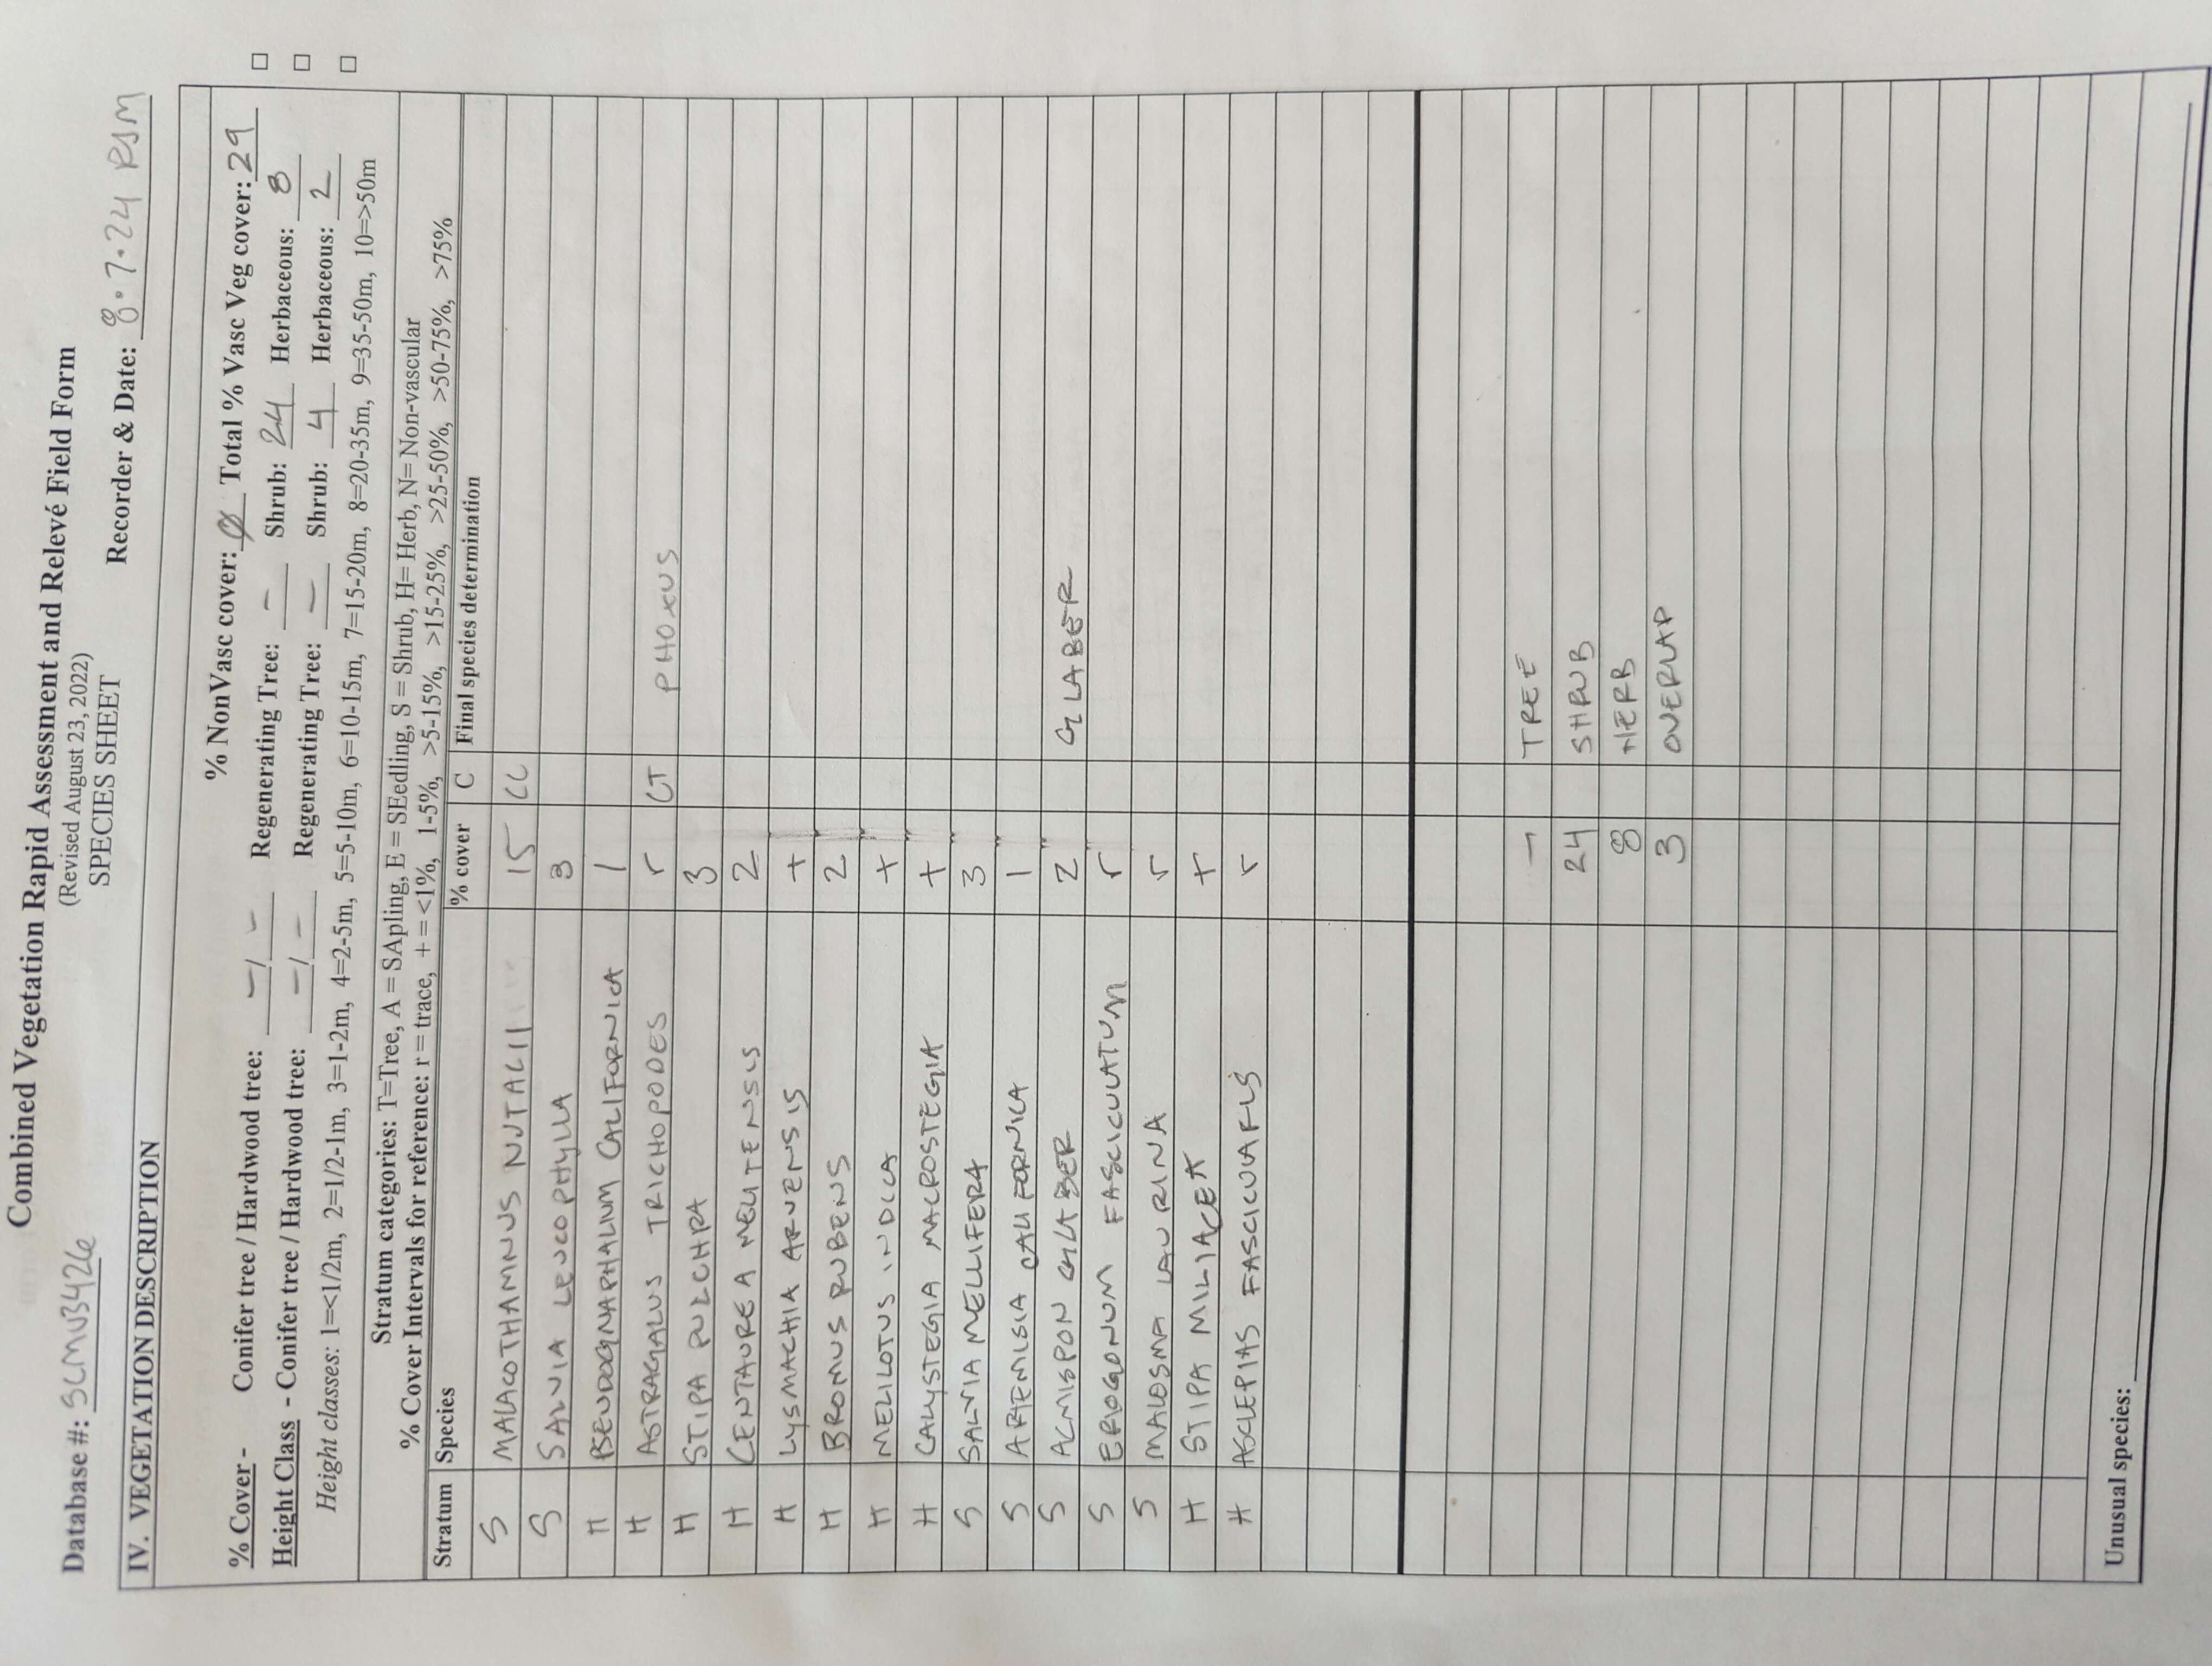 Combined Vegetation Rapid Assessment and Relevé Field Form
(Revised August 23, 2022)
SPECIES SHEET
Database #: SCMU3426 Recorder & Date: 8.7.24 RSM
IV. VEGETATION DESCRIPTION
% NonVasc cover: Ø Total % Vasc Veg cover: 29
% Cover - Conifer tree / Hardwood tree: - / - Regenerating Tree: - Shrub: 24 Herbaceous: 8
Height Class - Conifer tree / Hardwood tree: - / - Regenerating Tree: - Shrub: 4 Herbaceous: 2
Height classes: 1=<1/2m, 2=1/2-1m, 3=1-2m, 4=2-5m, 5=5-10m, 6=10-15m, 7=15-20m, 8=20-35m, 9=35-50m, 10=>50m
Stratum categories: T=Tree, A = SApling, E = SEedling, S = Shrub, H= Herb, N= Non-vascular
% Cover Intervals for reference: r = trace, + = <1%, 1-5%, >5-15%, >15-25%, >25-50%, >50-75%, >75%
Stratum Species % cover C Final species determination
S MALACOTHAMNUS NUTALII 15 CC
S SALVIA LEUCOPHYLLA 3
H PSEUDOGNAPHALIUM CALIFORNICA 1
H ASTRAGALUS TRICHOPODES r CT PHOXUS
H STIPA PULCHRA 3
H CENTAUREA MELITENSUS 2
H LYSMACHIA ARVENSIS +
H BROMUS RUBENS 2
H MELILOTUS INDICA +
H CALYSTEGIA MACROSTEGIA +
S SALVIA MELLIFERA 3
S ARTEMISIA CALIFORNICA 1
S ACMISPON GLABER 2 GLABER
S ERIOGONUM FASCICULATUM r
S MALOSMA LAURINA r
H STIPA MILIACEA +
H ASCLEPIAS FASCICULAFLIS r
- TREE
24 SHRUB
8 HERB
3 OVERLAP
Unusual species: